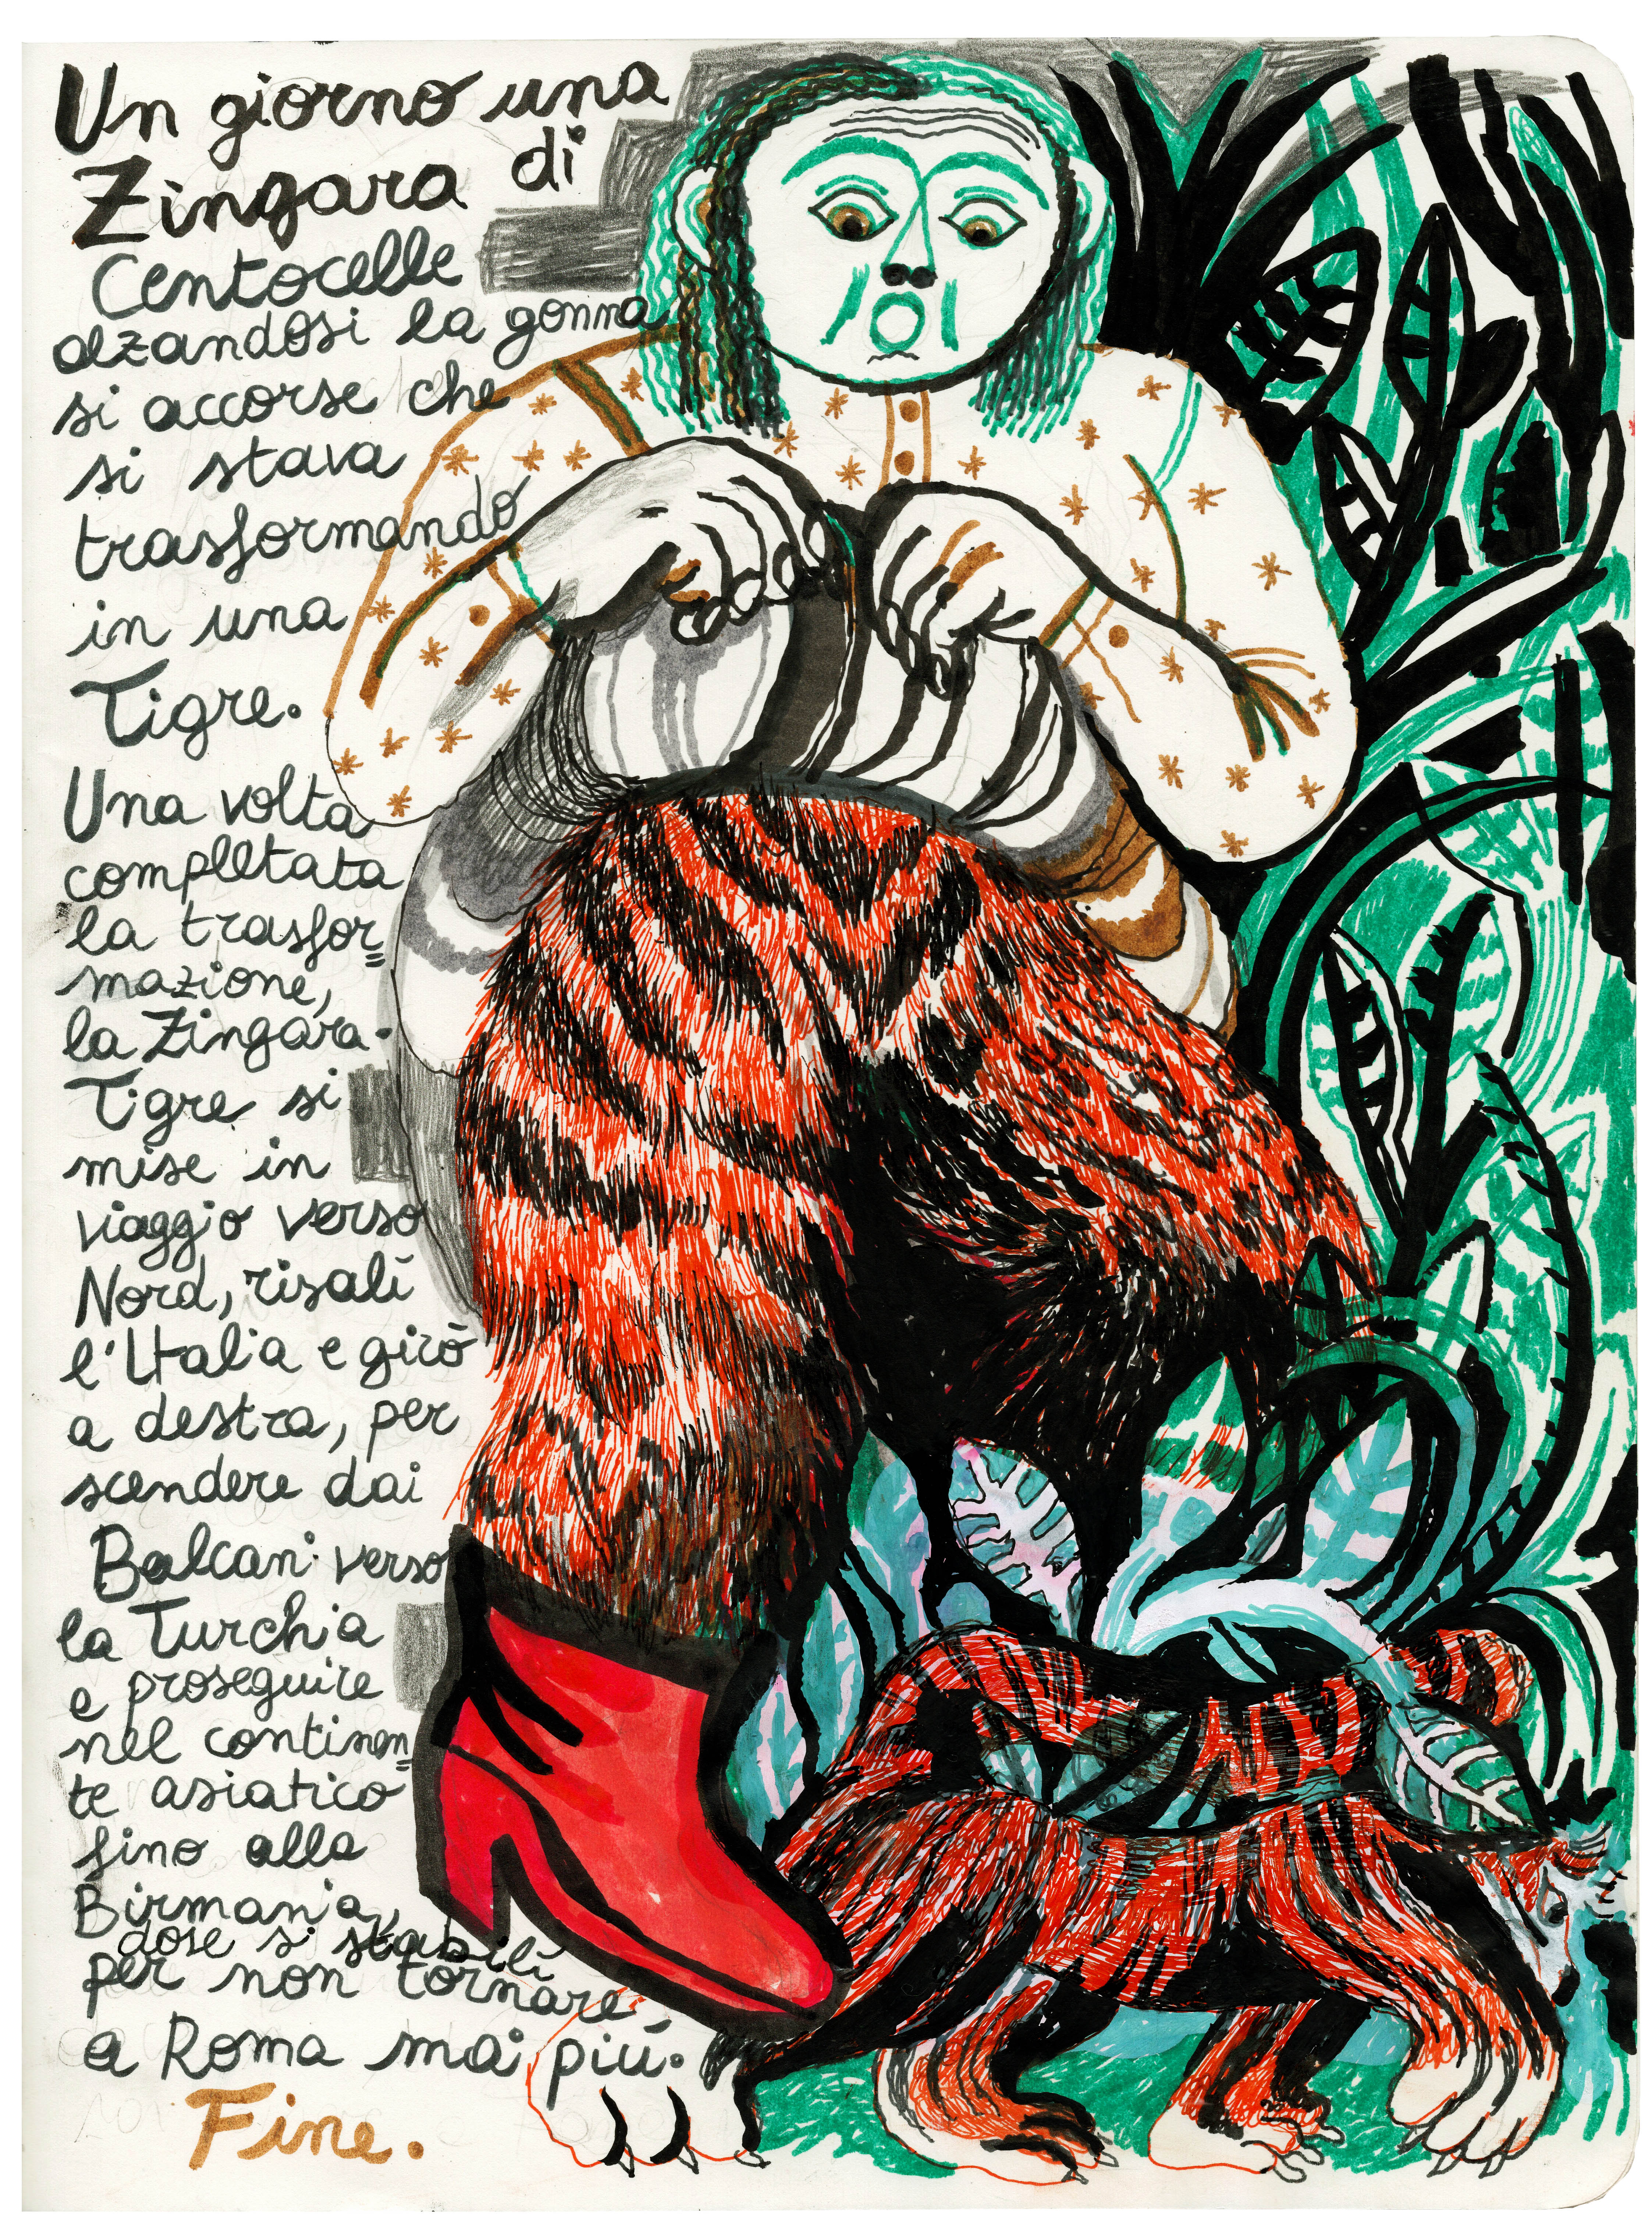 Un giorno una
Zingara di
Centocelle
alzandosi la gonna
si accorse che
si stava
trasformando
in una
Tigre.
Una volta
completata
la trasfor=
mazione,
la Zingara-
Tigre si
mise in
viaggio verso
Nord, risalí
l'Italia e girò
a destra, per
scendere dai
Balcani verso
la Turchia
e proseguire
nel continen=
te asiatico
fino alla
Birmania,
dose si stabilí
per non tornare,
a Roma mai piú.
Fine.